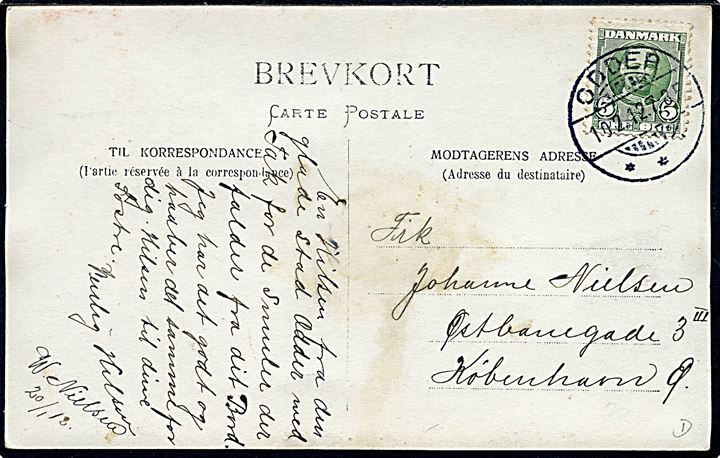 BREVKORT
CARTE POSTALE
TIL KORRESPONDANCE
(Partie réservée à la correspondance)
MODTAGERENS ADRESSE
(Adresse du destinataire)
DANMARK
5 5
ODDER
En Hilsen fra den
glade Stad Odder med
Tak for de Smuler der
falder fra dit Bord.
Jeg har det godt og
haaber det samme for
dig. Hilsen til dine
Venlig Hilsen
W Nielsen
20/1 12.
Frk
Johanne Nielsen
Østbanegade 3 III
København Ø.